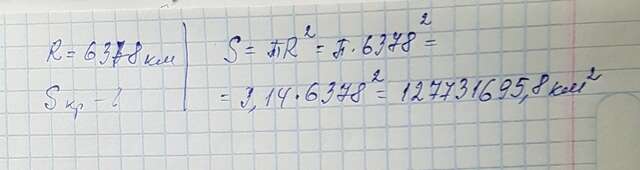 R = 6378 км
S кр - ?
S = πR² = π · 6378² =
= 3,14 · 6378² = 127731695,8 км²